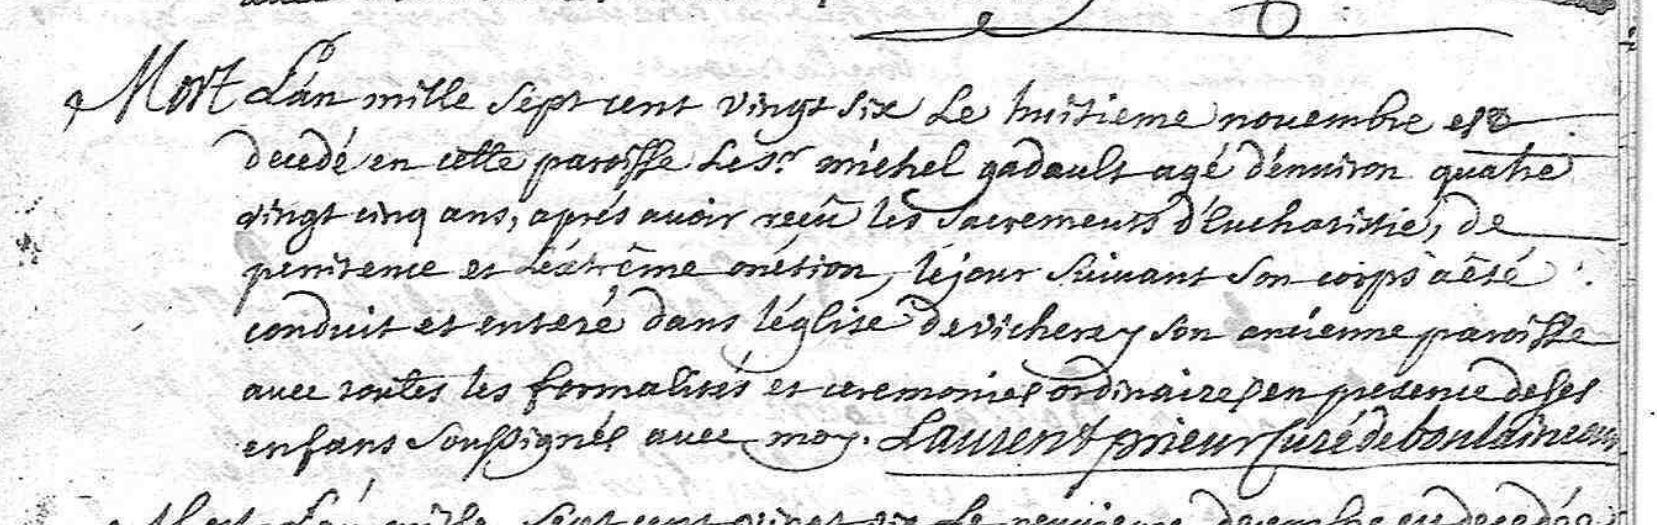 Mort L'an mille sept cent vingt six le huitieme novembre est
decedé en cette paroisse le sr. michel gadault agé d'enuiron quatre
vingt cinq ans, aprés auoir reçû les sacrements d'Eucharistie, de
penitence et l'éxtrême onction, le jour suiuant son corps a êté
conduit et enteré dans l'église de vicherey son anciénne paroisse
auec toutes les formalités et ceremonies ordinaires en presence de ses
enfans soussignés auec moy. Laurent prieur Curé de
Mort L'an mille sept cent vingt six le decembre est decedée